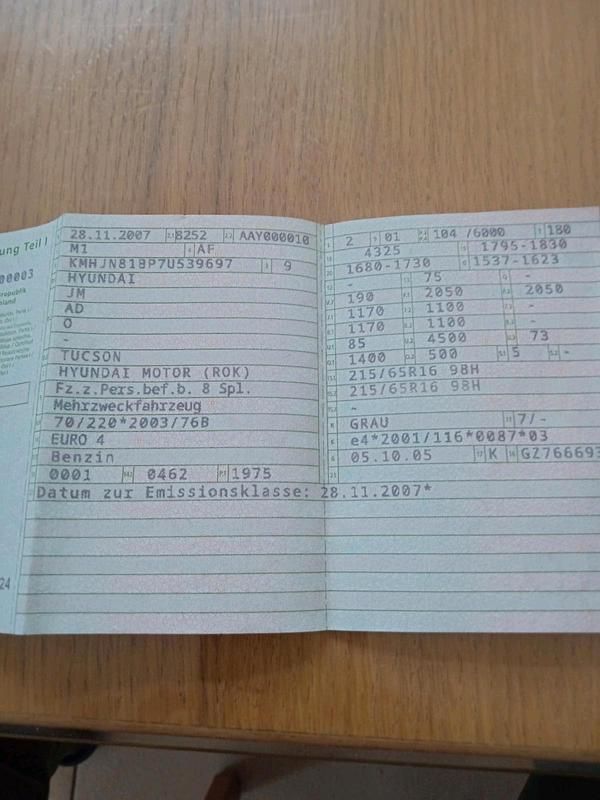 ung Teil I
00003
24
28.11.2007 8252 AAY000010
M1 AF
KMHJN81BP7U539697 9
HYUNDAI
JM
AD
O
-
TUCSON
HYUNDAI MOTOR (ROK)
Fz.z.Pers.bef.b. 8 Spl.
Mehrzweckfahrzeug
70/220*2003/76B
EURO 4
Benzin
0001 0462 1975
Datum zur Emissionsklasse: 28.11.2007*
2 01 104 /6000 180
4325 1795-1830
1680-1730 1537-1623
- 75 -
190 2050 2050
1170 1100 -
1170 1100 -
85 4500 73
1400 500 5 -
215/65R16 98H
215/65R16 98H
-
GRAU 7/-
e4*2001/116*0087*03
05.10.05 K GZ766693